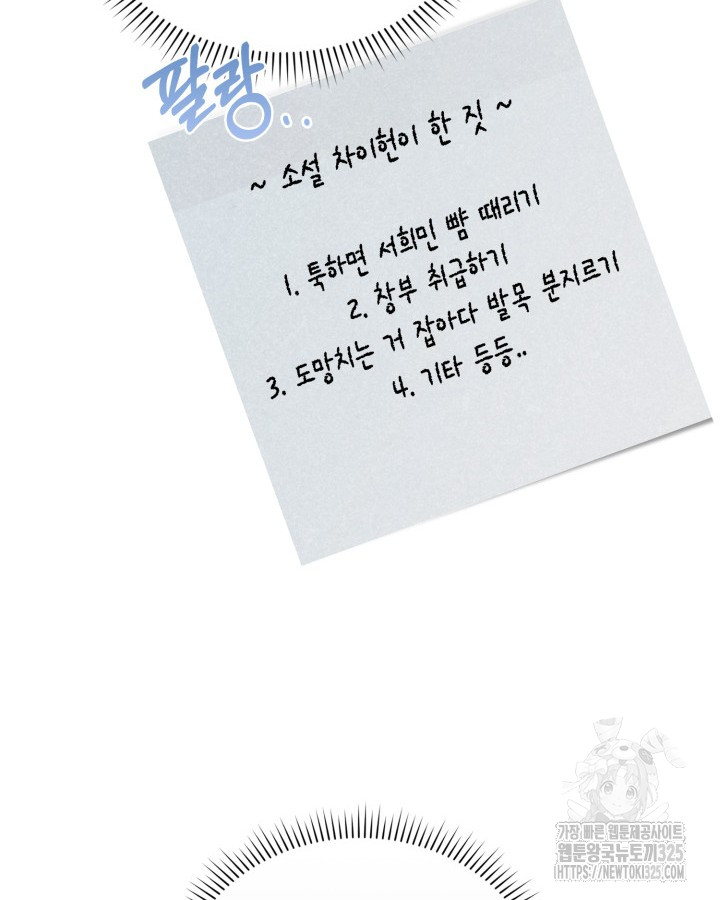 팔랑..
~ 소설 차이헌이 한 짓 ~
1. 툭하면 서희민 뺨 때리기
2. 창부 취급하기
3. 도망치는 거 잡아다 발목 분지르기
4. 기타 등등..
가장 빠른 웹툰제공사이트
웹툰왕국뉴토끼325
HTTPS://NEWTOKI325.COM